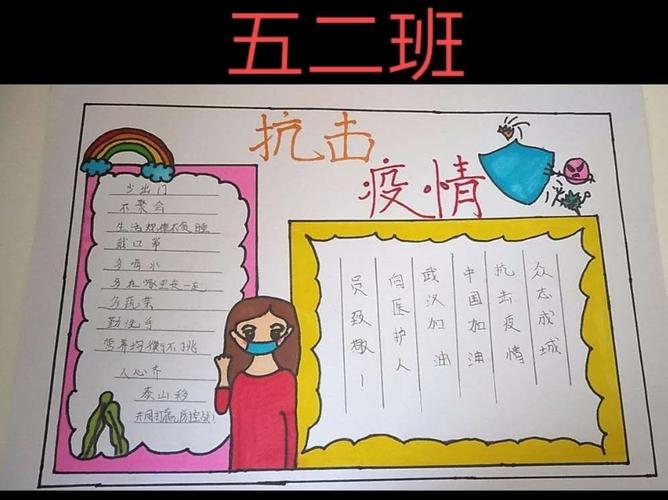 五二班
抗击
疫情
少出门
不聚会
生活规律不贪睡
戴口罩
多喝水
多在
多蔬菜
勤洗手
营养均衡不挑
人心齐
泰山移
共同打赢防控战!
众志成城
抗击疫情
中国加油
武汉加油
向医护人
员致敬！